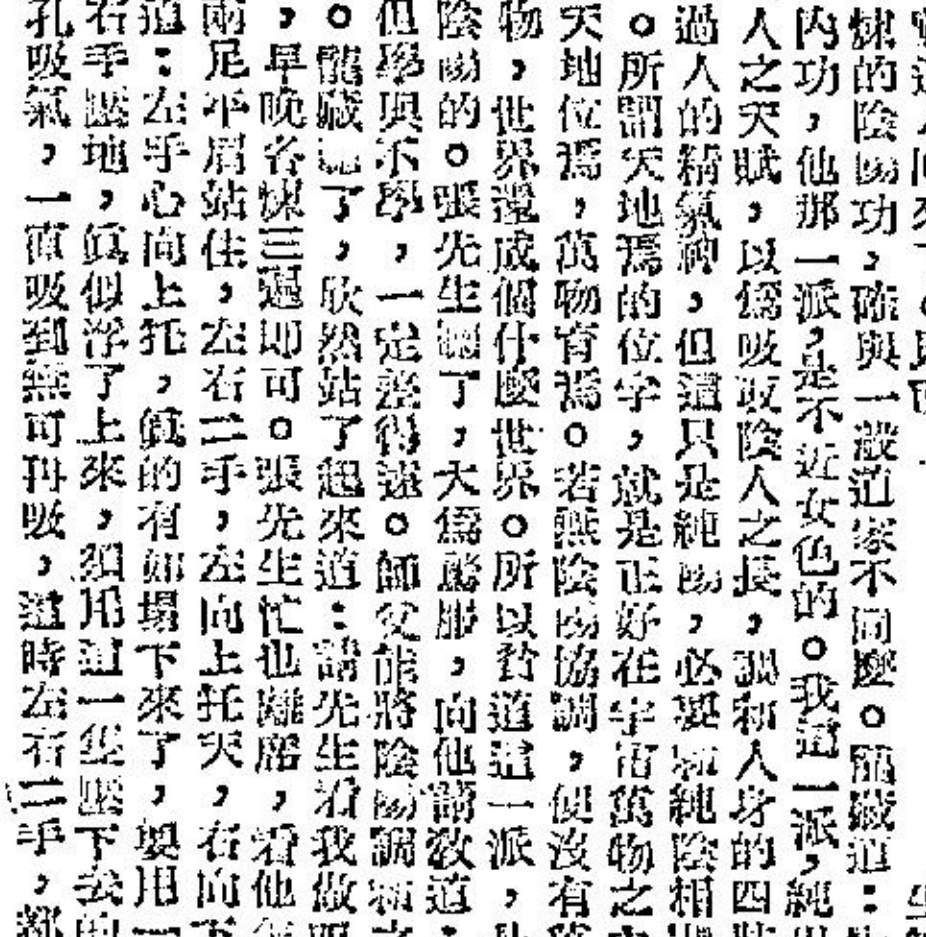 煉的陰陽功，確與一般道家不同麼。龍藏道：
內功，他那一派，是不近女色的。我這一派，純
人之天賦，以爲吸取陰人之長，調和人身的四
過人的精氣神，但這只是純陽，必要和純陰相
。所謂天地焉的位字，就是正好在宇宙萬物之
天地位焉，萬物育焉。若無陰陽協調，便沒有
物，世界還成個什麼世界。所以貧道這一派，
陰陽的。張先生聽了，大爲驚服，向他請教道：
但學與不學，一定差得遠。師父能將陰陽調和
。龍藏聽了，欣然站了起來道：請先生看我做
，早晚各煉三遍即可。張先生忙也離席，看他
兩足平眉站住，左右二手，左向上托天，右向下
道：左手心向上托，眞的有如塌下來了，要用一
右手壓地，眞似浮了上來，須用這一隻壓下去的
孔吸氣，一直吸到無可再吸，這時左右二手，都